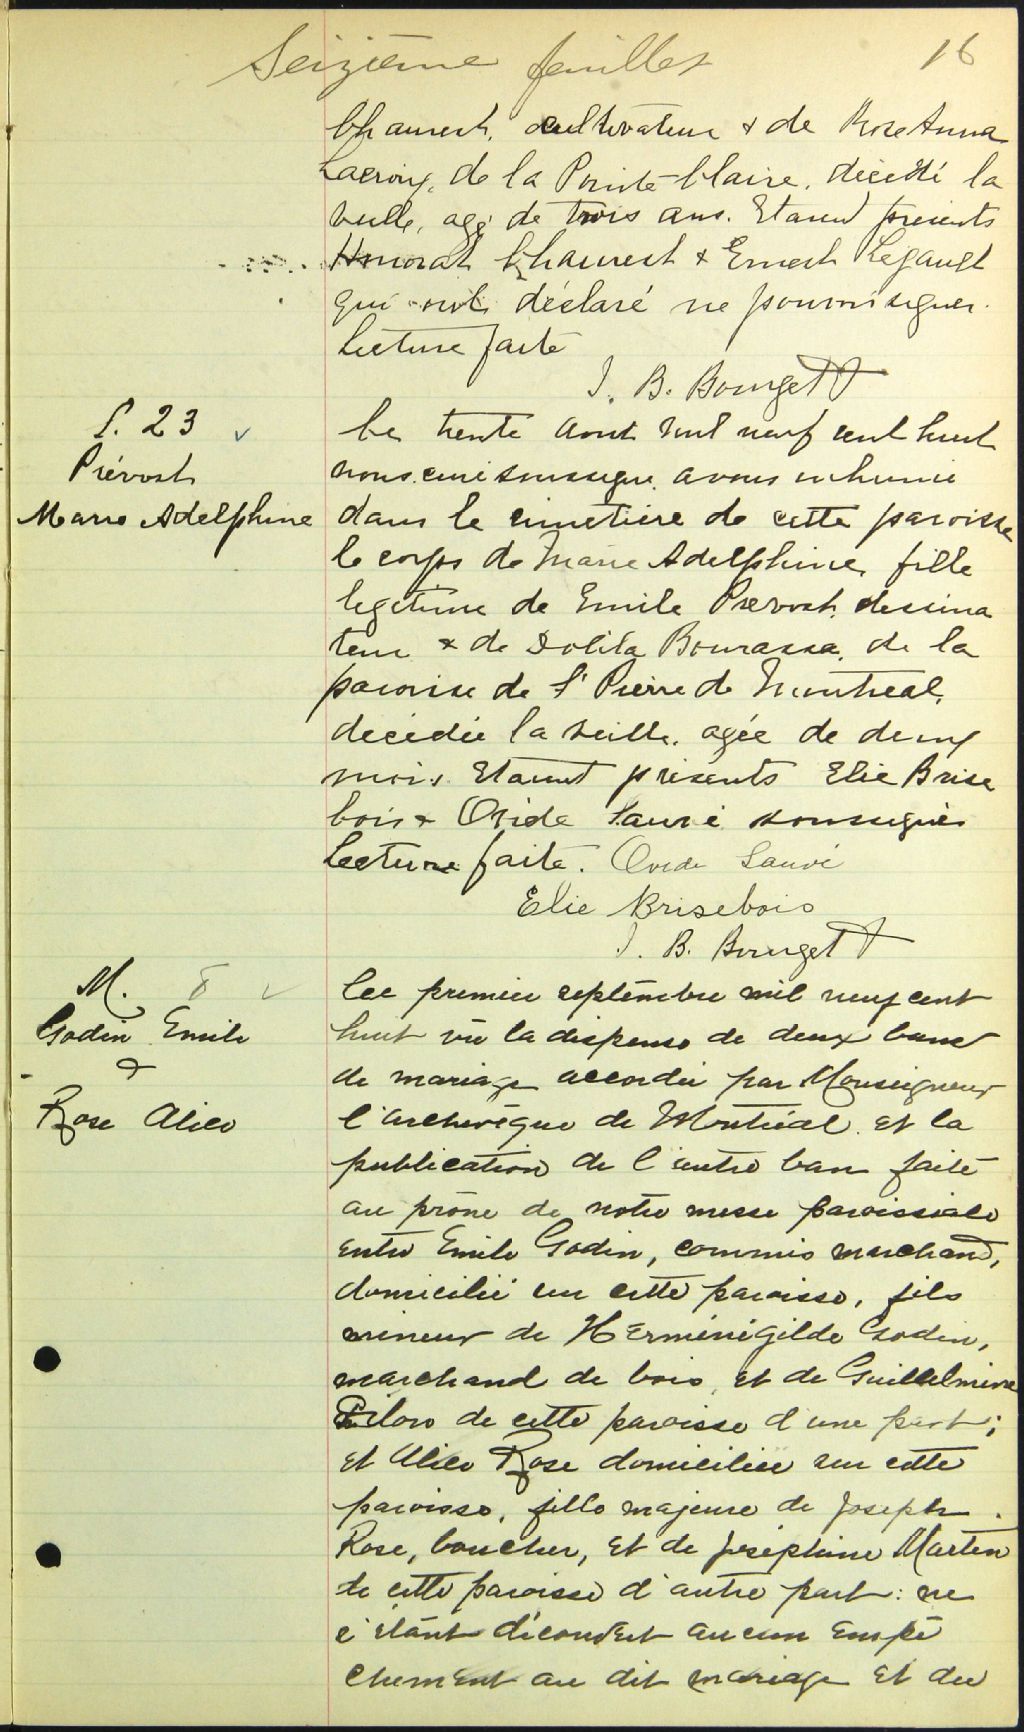 Seizième feuillet 16
Chaurest, cultivateur & de Rose Anna
Lacroix, de la Pointe Claire, décédé la
veille, agé de trois ans. Etaient présents
Honorat Chaurest & Ernest Legault
qui ont déclaré ne pouvoir signer.
Lecture faite
J. B. Bourget Ptre
S. 23
Prévost
Marie Adelphine
Le trente aout mil neuf cent huit
nous curé soussigné avons inhumé
dans le cimetière de cette paroisse
le corps de Marie Adelphine, fille
legitime de Emile Prévost, dessina
teur & de Lolita Bourassa, de la
paroisse de St Pierre de Montreal,
décédée la veille, agée de deux
mois. Etaient présents Elie Brise
bois & Ovide Sauvé soussignés
Lecture faite. Ovide Sauvé
Elie Brisebois
J. B. Bourget Ptre
M. 8
Godin Emile
&
Rose Alice
Le premier septembre mil neuf cent
huit vu la dispense de deux bans
de mariage accordée par Monseigneur
l'archevêque de Montréal et la
publication de l'autre ban faite
au prône de notre messe paroissiale
entre Emile Godin, commis marchand,
domicilié en cette paroisse, fils
mineur de Herménégilde Godin,
marchand de bois, et de Guillelmine
Pilon de cette paroisse d'une part;
et Alice Rose domiciliée en cette
paroisse, fille majeure de Joseph
Rose, boucher, et de Joséphine Martin
de cette paroisse d'autre part: ne
s'étant découvert aucun empê
chement au dit mariage et du